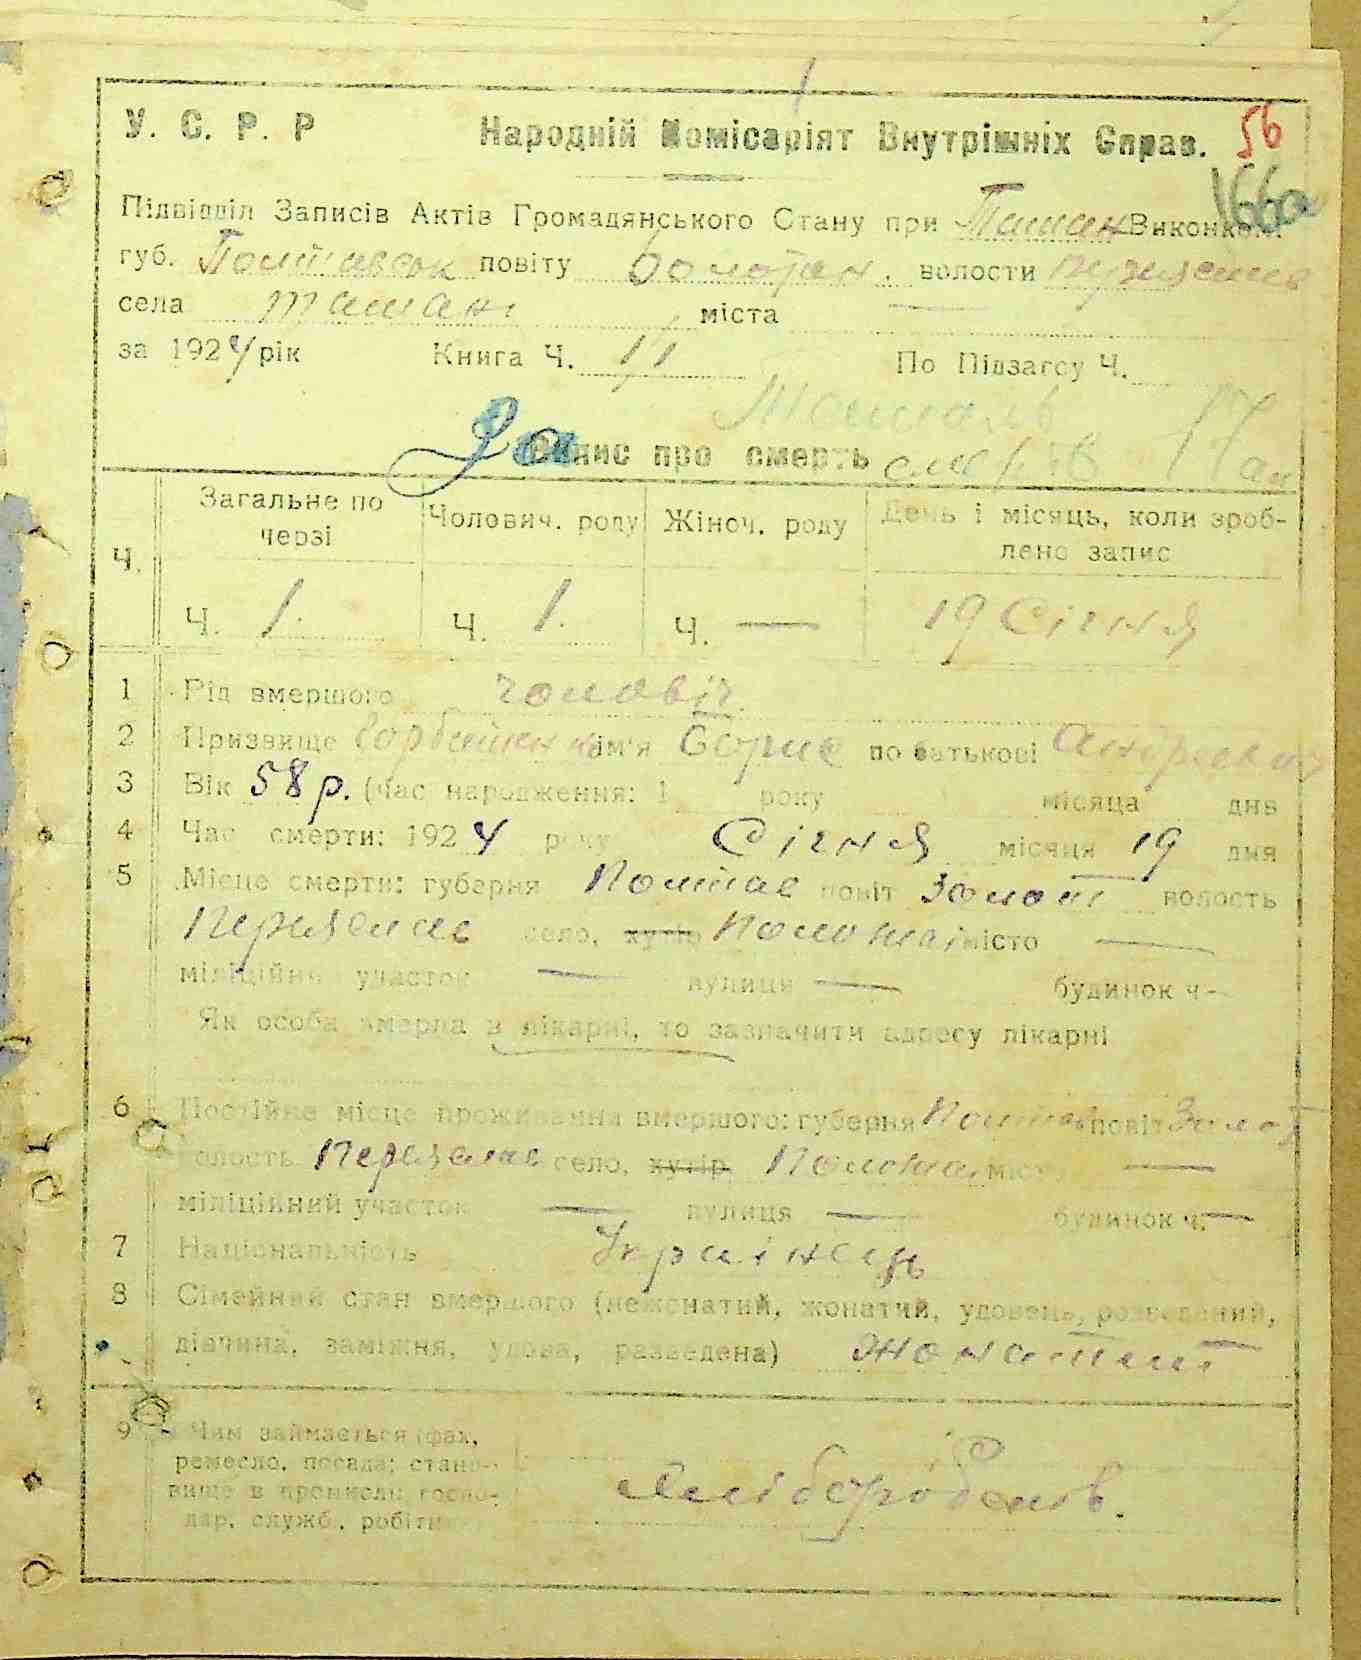 У. С. Р. Р Народній Комісаріят Внутрішніх Справ. 56
166а
Підвідділ Записів Актів Громадянського Стану при Ташан Виконкомі
губ. Полтавсок повіту Золотон. волости Переяслів
села Ташані міста —
за 1924 рік Книга Ч. II По Підзагсу Ч.
Запис про смерть
Ч. Загальне по черзі Чолович. роду Жіноч. роду День і місяць, коли зроблено запис
Ч. 1. Ч. 1. Ч. — 19 Січня
1 Рід вмершого чоловіч.
2 Призвище ім'я Борис по батькові Андреевич
3 Вік 58 р. (час народження: 1 року місяца дня
4 Час смерти: 1924 року Січня місяця 19 дня
5 Місце смерти: губерня Полтав повіт Золот волость
Переяслав село, хутір Положаї місто —
міліційни участок — вулиця — будинок ч -
Як особа вмерла в лікарні, то зазначити адресу лікарні
6 Постійне місце проживання вмершого: губерня Полтав повіт Золот
волость Переяслав село, хутір Положаї місто —
міліційний участок — вулиця — будинок ч. —
7 Національність Українець
8 Сімейний стан вмершого (нежонатий, жонатий, удовець, розведений,
дівчина, заміжня, удова, разведена) жонатий
9 Чим займається (фах,
ремесло, посада; стано-
вище в промисли господ-
дар, служб., робітник) хлібороб